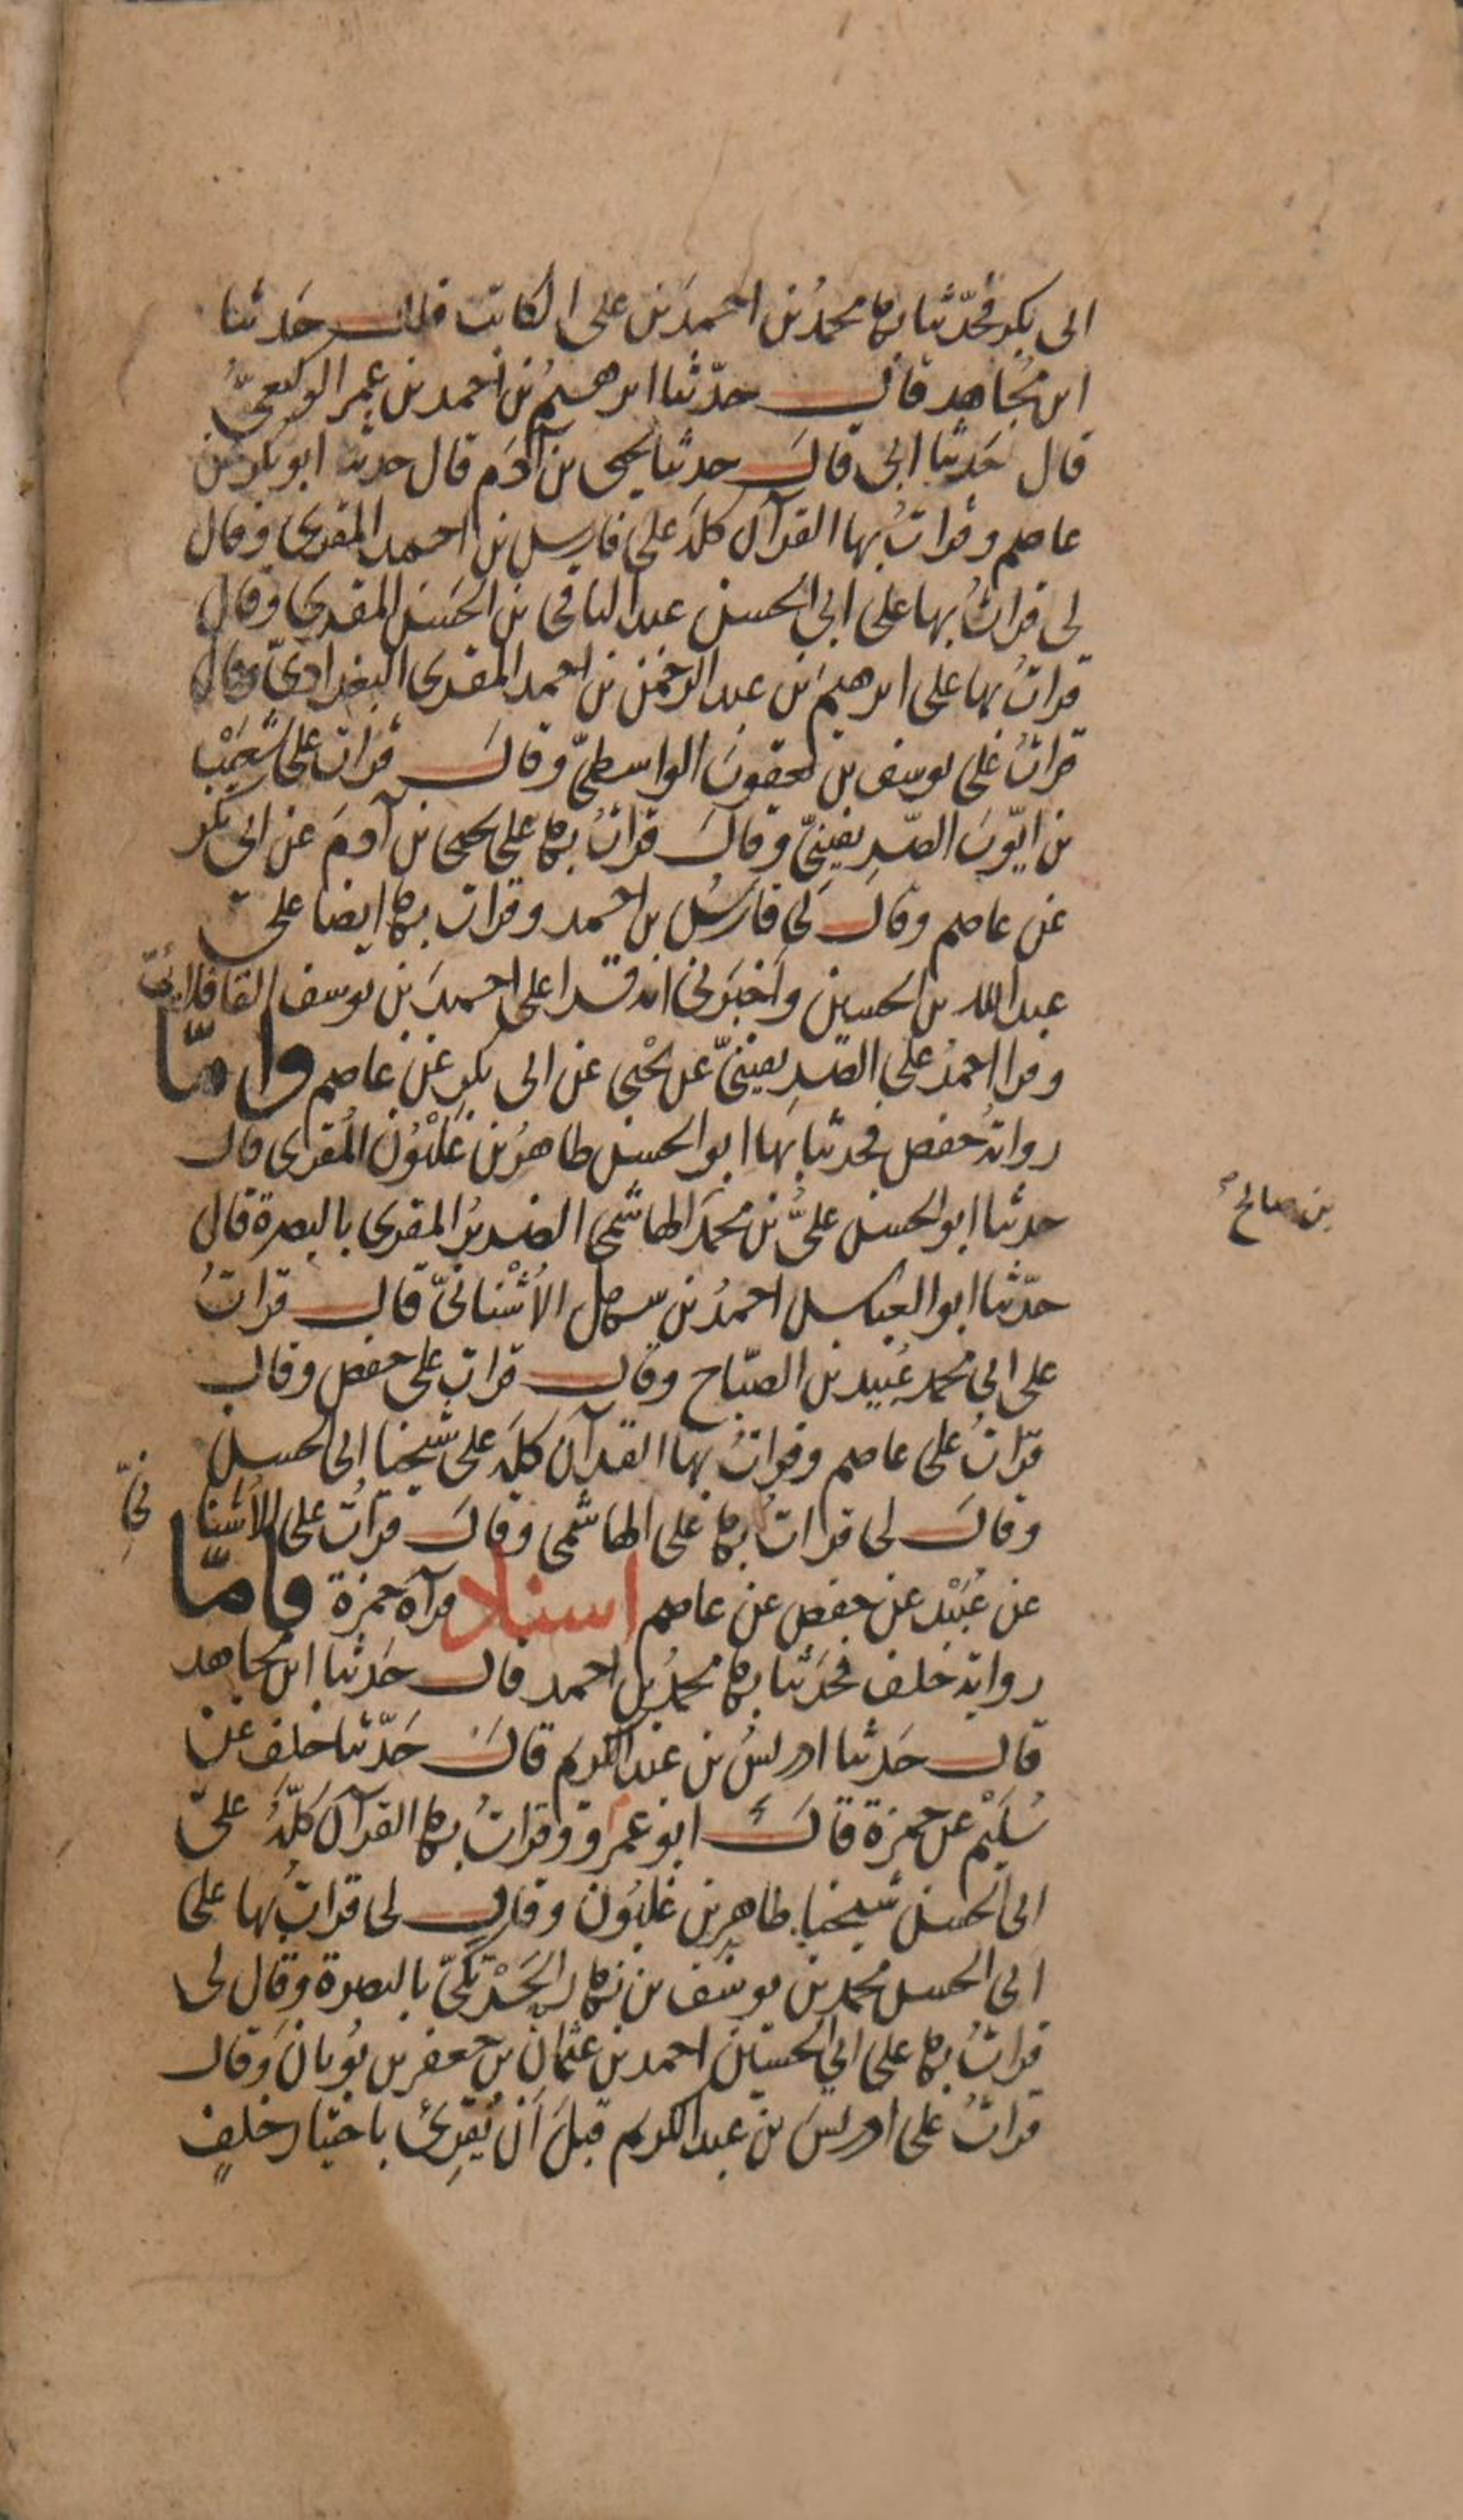 ابى بكر فحدّثنا بها محمدُ بن احمدَ بن على الكاتب قال حَدثنا
ابن مجُاهد قال حدّثنا ابرهيمُ بن احمد بن عمر الوكيعىُّ
قال حَدثنا ابى قالَ حدثنا يحيى بن آدَم قال حدثنا ابو بكر عن
عاصم وقراتُ بها القرآن كلَّه على فارسِ بن احمد المقرى وقال
لى قراتُ بها على ابى الحسن عبد الباقى بن الحَسَن المقرى وقال
قراتُ بها على ابرهيمَ بن عبد الرحمن بن احمد المقرى البغداذىّ وقال
قراتُ على يوسف بن يعقوبَ الواسطىّ وقالَ قرات على شُعَيْب
بن ايّوبَ الصّرِيفينىّ وقالَ قراتُ بها على يحيى بن آدمَ عن ابى بكر
عن عاصم وقالَ لى فارسُ بن احمد وقرات بها ايضا على
عبد الله بن الحسين وأخبَرنى انه قرا على احمدَ بن يوسف القافلانىّ
وقرا احمدُ على الصّرِيفينىّ عن يحْيى عن ابى بكرٍ عن عاصم وامّا
روايةُ حفص فحدثنا بهَا ابو الحسن طاهرُ بن غَلْبُونَ المُقرى قال
حدثنا ابو الحسن علىُّ بن محمّد الهاشمى الضريرُ المقرى بالبصرة قال
بن صالح
حدّثنا ابو العباس احمدُ بن سهل الأُشْنانىّ قال قراتُ
على ابى محمد عُبيد بن الصبّاح وقال قرات على حفص وقال
قراتُ على عاصم وقراتُ بها القرآن كلَّه على شيخنا ابى الحسن
وقالَ لى قراتُ بها على الهاشمى وقالَ قراتُ على الأشنانىّ
عن عُبَيْد عن حفص عن عاصم اسناد قرآة حمزة فامّا
رواية خلف فحَدَثنا بها محمدُ بن احمد قال حَدثنا ابن مجاهد
قال حَدثنا ادريسُ بن عبد الكريم قالَ حَدّثنا خلف عن
سُلَيْم عن حمزة قالَ ابو عمرو وقراتُ بها القرآنَ كلَّهُ على
ابى الحسن شيخنا طاهرِ بن غلبُون وقال لى قراتُ بها على
ابى الحسن محمد بن يوسُف بن نهار الحَرْتكىّ بالبصرة وقال لى
قراتُ بها على ابى الحسين احمد بن عثمان بن جعفر بن بُويانَ وقال
قراتُ على ادريسَ بن عبد الكريم قبلَ أن يُقرِئَ باختيار خلفٍ